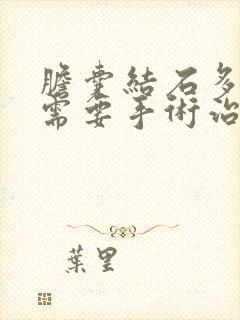 膽囊結石多
需要手術治
葉里